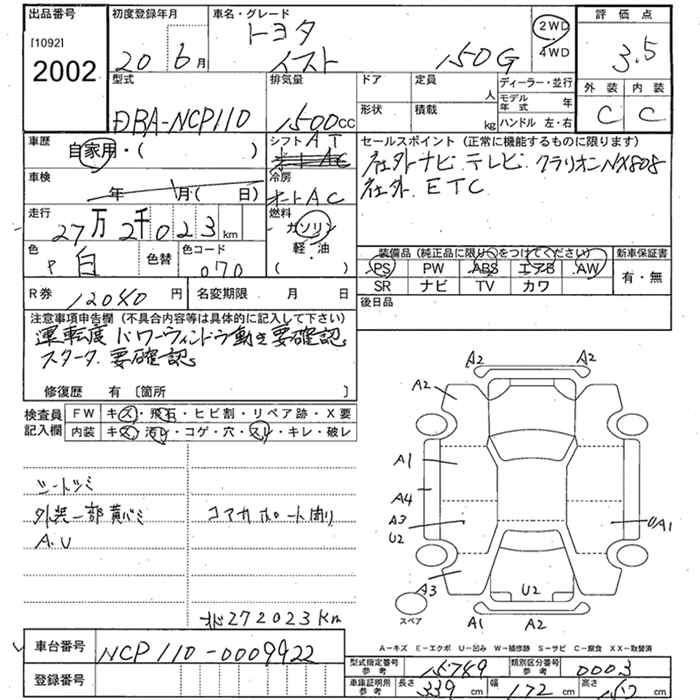 出品番号
[1092]
2002
初度登録年月
20 6月
車名・グレード
トヨタ
イスト 150G
2WD
4WD
評価点
3.5
外装 内装
C C
型式
DBA-NCP110
排気量
1500CC
ドア
定員
人
形状
積載
kg
ディーラー・並行
モデル年式 年
ハンドル 左・右
車歴
自家用・( )
シフト AT
冷房
オートAC
セールスポイント (正常に機能するものに限ります)
社外ナビ テレビ クラリオンNX808
社外 ETC
車検
年 月( 日)
走行
27万2千023km
燃料
ガソリン
軽・油
( )
色
P 白
色替
色コード
070
装備品(純正品に限り○をつけてください)
PS PW ABS エアB AW
SR ナビ TV カワ
新車保証書
有・無
後日品
R券 12040円
名変期限 月 日
注意事項申告欄(不具合内容等は具体的に記入して下さい)
運転席 パワーウィンドウ動き要確認。
スタータ 要確認。
修復歴 有 〔箇所 〕
検査員記入欄
FW キズ・飛石・ヒビ割・リペア跡・X要
内装 キズ・汚レ・コゲ・穴・スレ・キレ・破レ
シートシミ
外装一部黄バミ
A.U
272023Km
車台番号 NCP110-0009922
登録番号
A2 A2
A2
A1
A4
A3
U2
A1
A3
U2
スペア
A1 A2
A-キズ E-エクボ U-凹み W-補修跡 S-サビ C-腐食 XX-取替済
型式指定番号 参考 15789
類別区分番号 参考 0003
車庫証明用 参考 長さ 339cm 幅 172cm 高さ cm